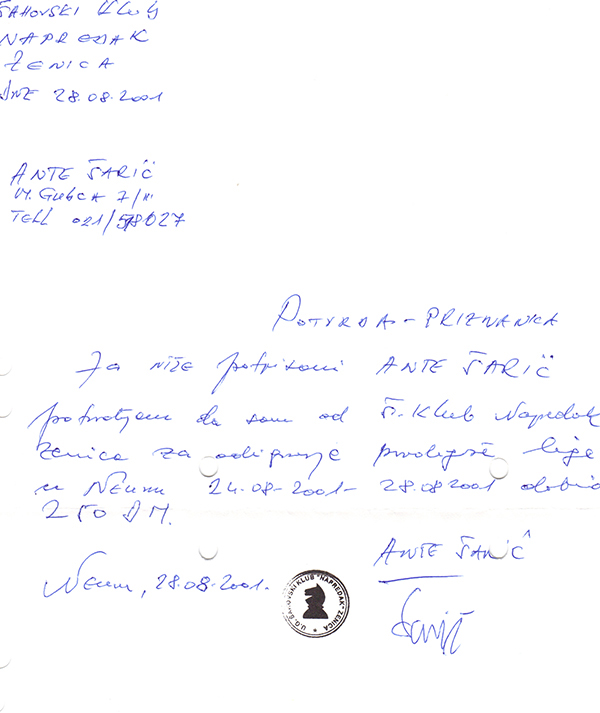 ŠAHOVSKI KLUB
NAPREDAK
ZENICA
DNE 28.08.2001
ANTE ŠARIĆ
M. GUBCA 7/III
TELL 021/578627
POTVRDA - PRIZNANICA
Ja niže potpisani ANTE ŠARIĆ
potvrđujem da sam od Š. Klub Napredak
Zenica za odigranje prvoligaške lige
u NEUMU 24.08-2001- 28.08 2001 dobio
250 DM.
ANTE ŠARIĆ
Neum, 28.08.2001.
U.G. ŠAHOVSKI KLUB "NAPREDAK" ZENICA
Šarić